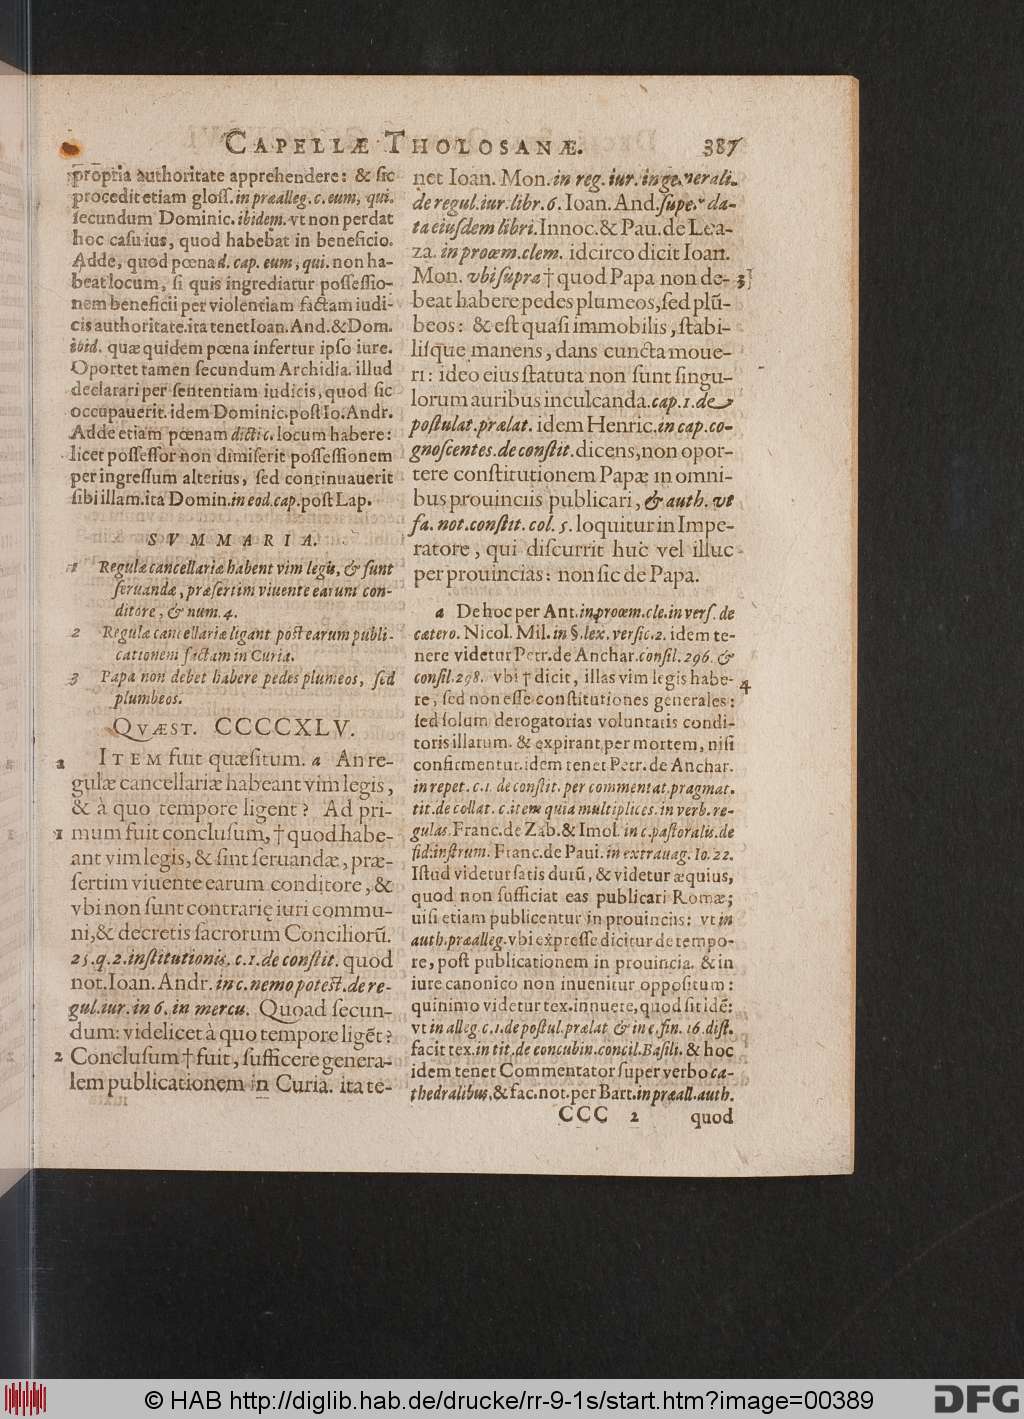 CAPELLÆ THOLOSANÆ. 387
propria authoritate apprehendere: & sic
procedit etiam gloss. in præalleg. c. eum, qui.
secundum Dominic. ibidem. vt non perdat
hoc casu ius, quod habebat in beneficio.
Adde, quod pœna d. cap. eum, qui. non ha-
beat locum, si quis ingrediatur possessio-
nem beneficii per violentiam factam iudi-
cis authoritate. ita tenet Ioan. And. & Dom.
ibid. quæ quidem pœna infertur ipso iure.
Oportet tamen secundum Archidia. illud
declarari per sententiam iudicis, quod sic
occupauerit. idem Dominic. post Io. Andr.
Adde etiam pœnam dicti c. locum habere:
licet possessor non dimiserit possessionem
per ingressum alterius, sed continuauerit
sibi illam. ita Domin. in eod. cap. post Lap.
SVMMARIA.
1 Regulæ cancellariæ habent vim legis, & sunt
seruandæ, præsertim viuente earum con-
ditore, & num. 4.
2 Regulæ cancellariæ ligant post earum publi-
cationem factam in Curia.
3 Papa non debet habere pedes plumeos, sed
plumbeos.
QVÆST. CCCCXLV.
ITEM fuit quæsitum. a An re-
gulæ cancellariæ habeant vim legis,
& à quo tempore ligent? Ad pri-
1 mum fuit conclusum, † quod habe-
ant vim legis, & sint seruandæ, præ-
sertim viuente earum conditore, &
vbi non sunt contrarię iuri commu-
ni, & decretis sacrorum Conciliorũ.
25. q. 2. institutionis. c. 1. de constit. quod
not. Ioan. Andr. in c. nemo potest. de re-
gul. iur. in 6. in mercu. Quoad secun-
dum: videlicet à quo tempore ligẽt?
2 Conclusum † fuit, sufficere genera-
lem publicationem in Curia. ita te-
net Ioan. Mon. in reg. iur. in generali.
de regul. iur. libr. 6. Ioan. And. super da-
ta eiusdem libri. Innoc. & Pau. de Lea-
za. in proœm. clem. idcirco dicit Ioan.
Mon. vbi supra † quod Papa non de- 3
beat habere pedes plumeos, sed plũ-
beos: & est quasi immobilis, stabi-
lisque manens, dans cuncta moue-
ri: ideo eius statuta non sunt singu-
lorum auribus inculcanda. cap. 1. de
postulat. prælat. idem Henric. in cap. co-
gnoscentes. de constit. dicens, non opor-
tere constitutionem Papæ in omni-
bus prouinciis publicari, & auth. vt
fa. not. constit. col. 5. loquitur in Impe-
ratore, qui discurrit huc vel illuc
per prouincias: non sic de Papa.
a De hoc per Ant. in proœm. cle. in vers. de
cætero. Nicol. Mil. in §. lex. versic. 2. idem te-
nere videtur Petr. de Anchar. consil. 296. &
consil. 298. vbi † dicit, illas vim legis habe- 4
re, sed non esse constitutiones generales:
sed solum derogatorias voluntatis condi-
toris illarum. & expirant per mortem, nisi
confirmentur. idem tenet Petr. de Anchar.
in repet. c. 1. de constit. per commentat. pragmat.
tit. de collat. c. item quia multiplices. in verb. re-
gulas. Franc. de Zab. & Imol. in c. pastoralis. de
fid. instrum. Franc. de Paui. in extrauag. Io. 22.
Istud videtur satis durũ, & videtur æquius,
quod non sufficiat eas publicari Romæ;
uisi etiam publicentur in prouinciis: vt in
auth. præalleg. vbi expresse dicitur de tempo-
re, post publicationem in prouincia. & in
iure canonico non inuenitur oppositum:
quinimo videtur tex. innuere, quod sit idẽ:
vt in alleg. c. 1. de postul. prælat. & in c. fin. 16. dist.
facit tex. in tit. de concubin. concil. Basili. & hoc
idem tenet Commentator super verbo ca-
thedralibus, & fac. not. per Bart. in præall. auth.
CCC 2 quod
© HAB http://diglib.hab.de/drucke/rr-9-1s/start.htm?image=00389
DFG